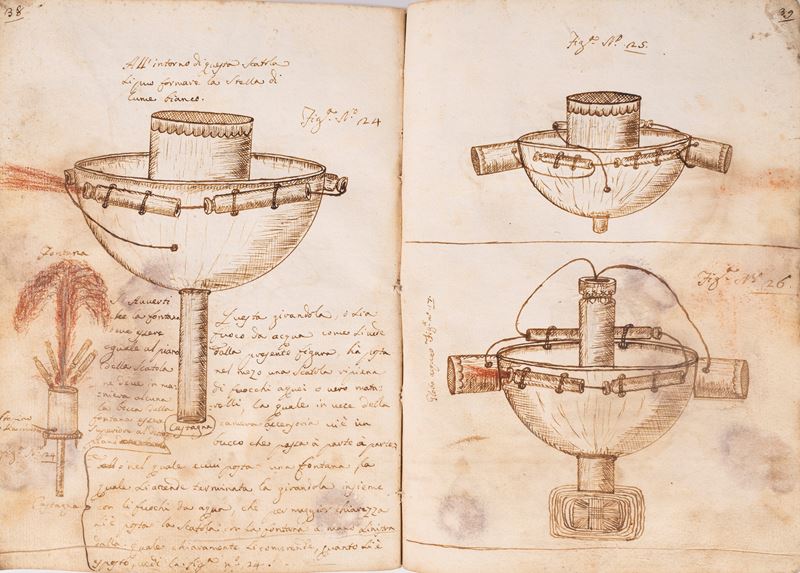 38
All'intorno di questa Scatola
si può formare la Stella di
lume bianco.
Fig.ª N.º 24
Fontana
Si avverti
che la fontana
deve essere
eguale al paro
della Scatola
ne deve in ma:
niera alcuna
la bocca della
fontana essere
Fig.ª N.º 24
Castagna
Castagna
Questa girandola, o sia
fuoco da acqua come si vede
dalla presente figura, ha posta
nel mezo una Scatola ripiena
di fuochi aquei o vero mata:
relli, la quale in vece della
camera vi è un
bucco che passa à parte à parte
nel quale posta una fontana, la
quale si accende terminata la girandola insieme
con li fuochi da aqua, che per maggior chiarezza
si è posta la Scatola con la fontana à mano
dalla quale chiaramente si comprende, quanto si è
esposto, vedi la fig.ª n.º 24.
39
Fig.ª N.º 25.
Fig.ª N.º 26.